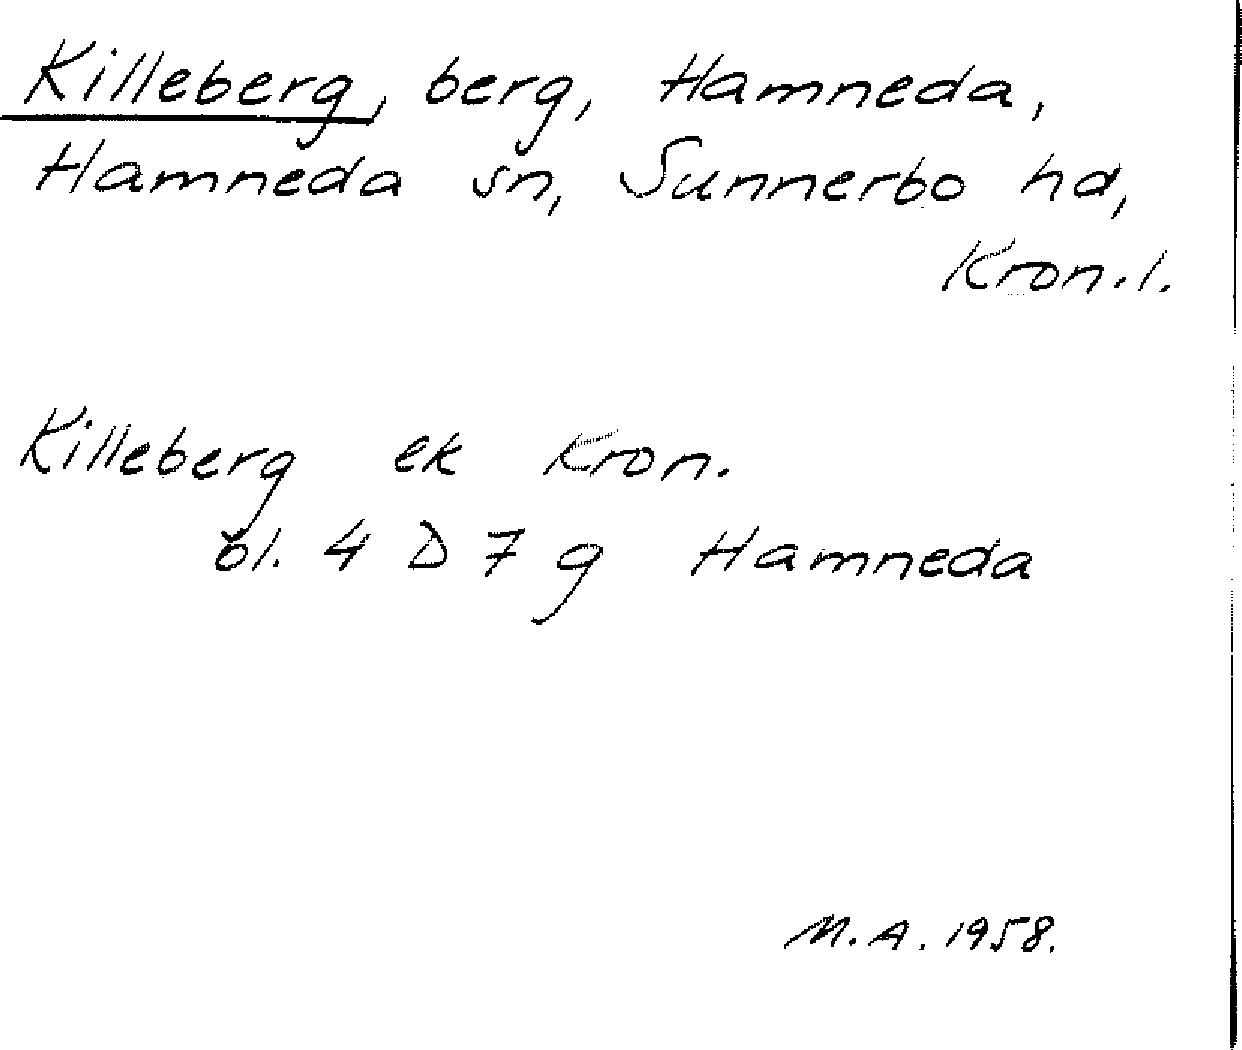 Killeberg, berg, Hamneda,
Hamneda sn, Sunnerbo hd,
Kron.l.
Killeberg ek Kron.
bl. 4 D 7 g Hamneda
M.A. 1958.